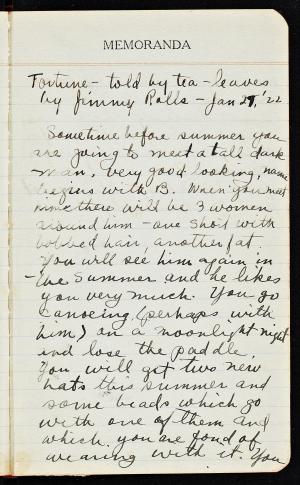 MEMORANDA
Fortune - told by tea - leaves
by Jimmy Rolls - Jan 27, '22
Sometime before summer you
are going to meet a tall dark
man, very good looking, name
begins with B. When you meet
him there will be 3 women
around him - one short with
bobbed hair, another fat.
You will see him again in
the summer and he likes
you very much. You go
canoeing (perhaps with
him) on a moonlight night
and lose the paddle.
You will get two new
hats this summer and
some beads which go
with one of them and
which you are fond of
wearing with it. You